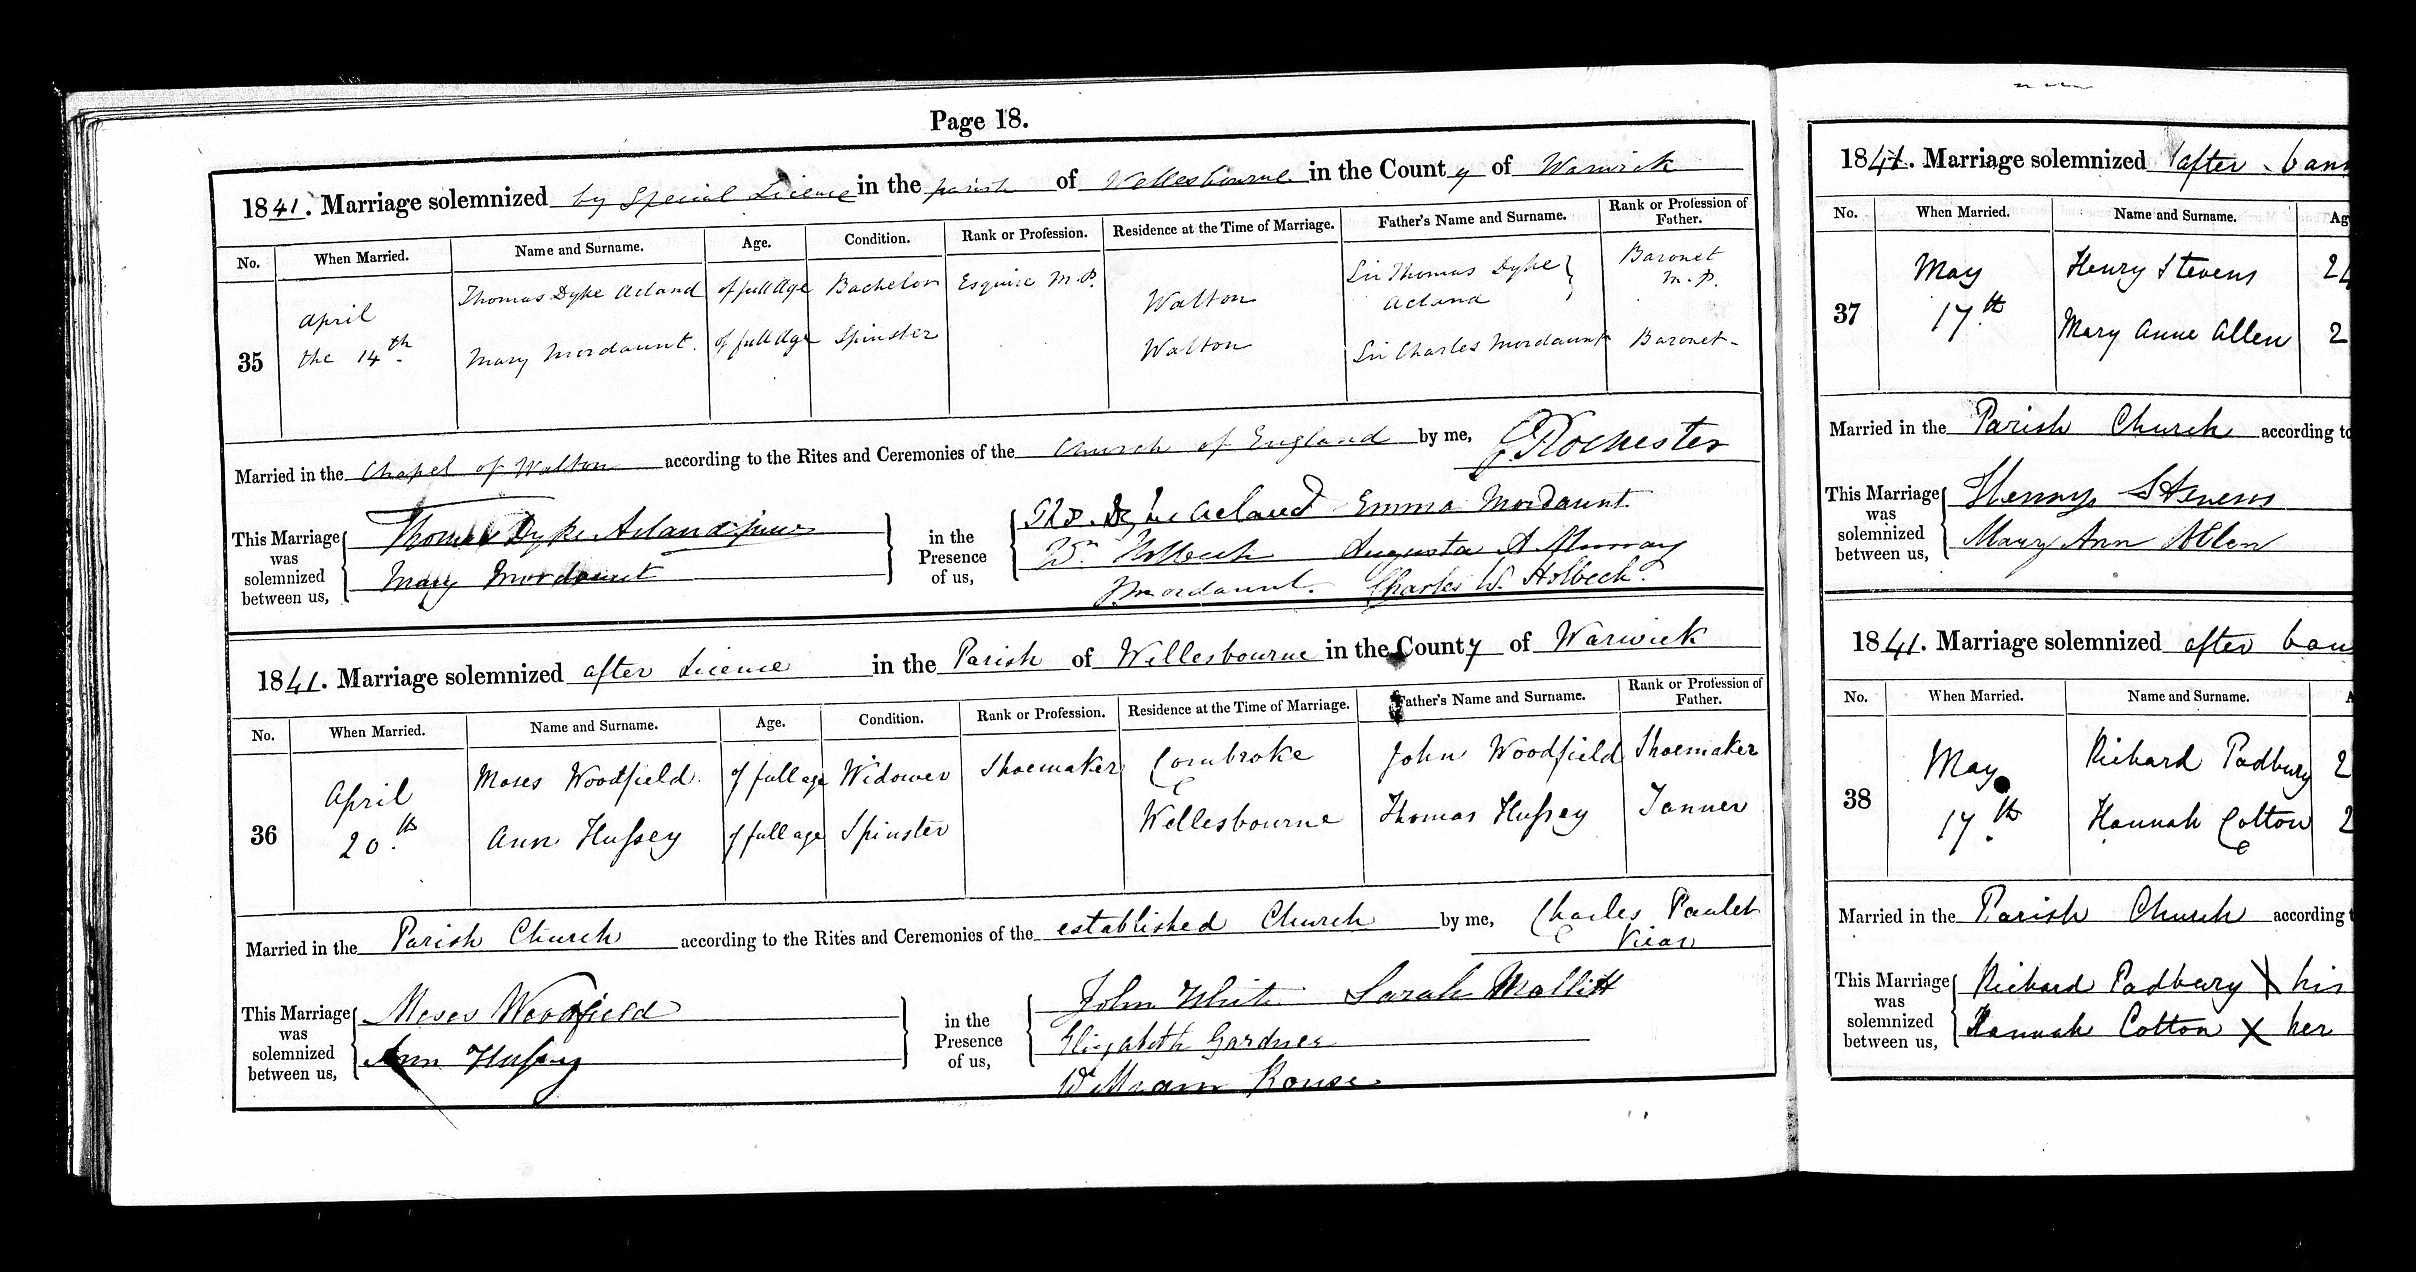 Page 18.
1841. Marriage solemnized by Special Licence in the parish of Wellesbourne in the County of Warwick
No. When Married. Name and Surname. Age. Condition. Rank or Profession. Residence at the Time of Marriage. Father's Name and Surname. Rank or Profession of Father.
35 April the 14th. Thomas Dyke Acland of full Age Bachelor Esquire M.P. Walton Sir Thomas Dyke Acland } Baronet M.P.
Mary Mordaunt. of full Age Spinster Walton Sir Charles Mordaunt Baronet-
Married in the Chapel of Walton according to the Rites and Ceremonies of the Church of England by me, G. Rochester
This Marriage was solemnized between us, { Thomas Dyke Acland junr
Mary Mordaunt } in the Presence of us, { Thos. Dyke Acland Emma Mordaunt.
Wm. Holbech Augusta A Murray
Mordaunt. Charles W. Holbech.
1841. Marriage solemnized after Licence in the Parish of Wellesbourne in the County of Warwick
No. When Married. Name and Surname. Age. Condition. Rank or Profession. Residence at the Time of Marriage. Father's Name and Surname. Rank or Profession of Father.
36 April 20.th Moses Woodfield. of full age Widower Shoemaker Combroke John Woodfield Shoemaker
Ann Hussey of full age Spinster Wellesbourne Thomas Hussey Tanner
Married in the Parish Church according to the Rites and Ceremonies of the established Church by me, Charles Paulet
Vicar
This Marriage was solemnized between us, { Moses Woodfield
Ann Hussey } in the Presence of us, { John White Sarah Mollitt
Elizabeth Gardner
William Rouse.
1841. Marriage solemnized after bann
No. When Married. Name and Surname. Ag
37 May 17th Henry Stevens 24
Mary Anne Allen 2
Married in the Parish Church according to
This Marriage was solemnized between us, { Henry Stevens
Mary Ann Allen
1841. Marriage solemnized after ban
No. When Married. Name and Surname. A
38 May 17th. Richard Padbury 2
Hannah Cotton 2
Married in the Parish Church according t
This Marriage was solemnized between us, { Richard Padbury X his
Hannah Cotton X her